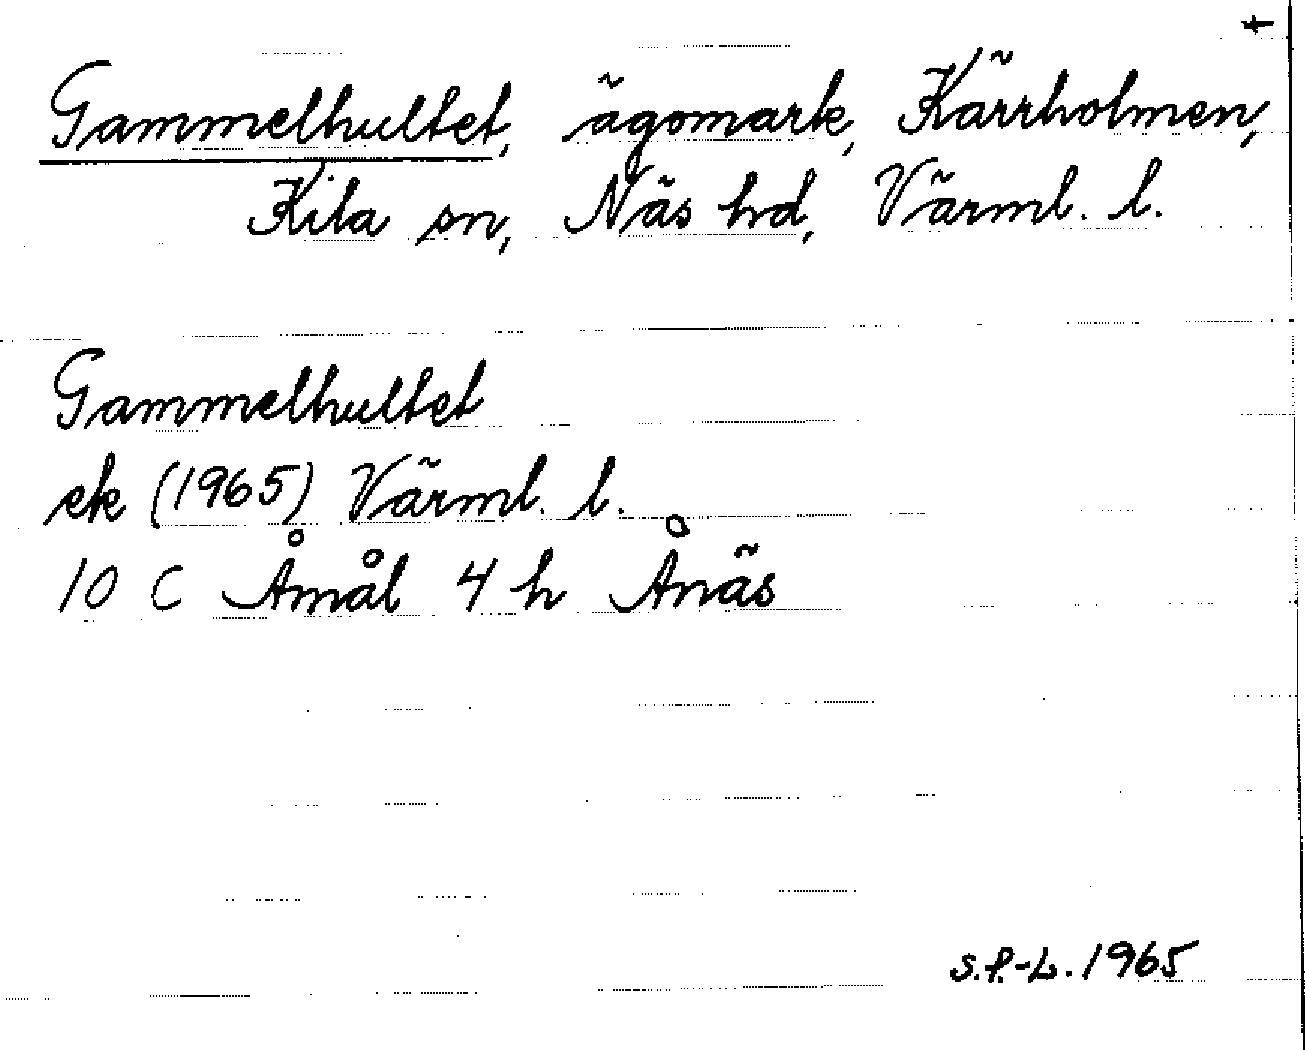 Gammelhultet, ägomark, Kärrholmen,
Kila sn, Näs hd, Värml. l.
Gammelhultet
ek (1965) Värml. l.
10 C Åmål 4 h Ånäs
S.P.-L. 1965